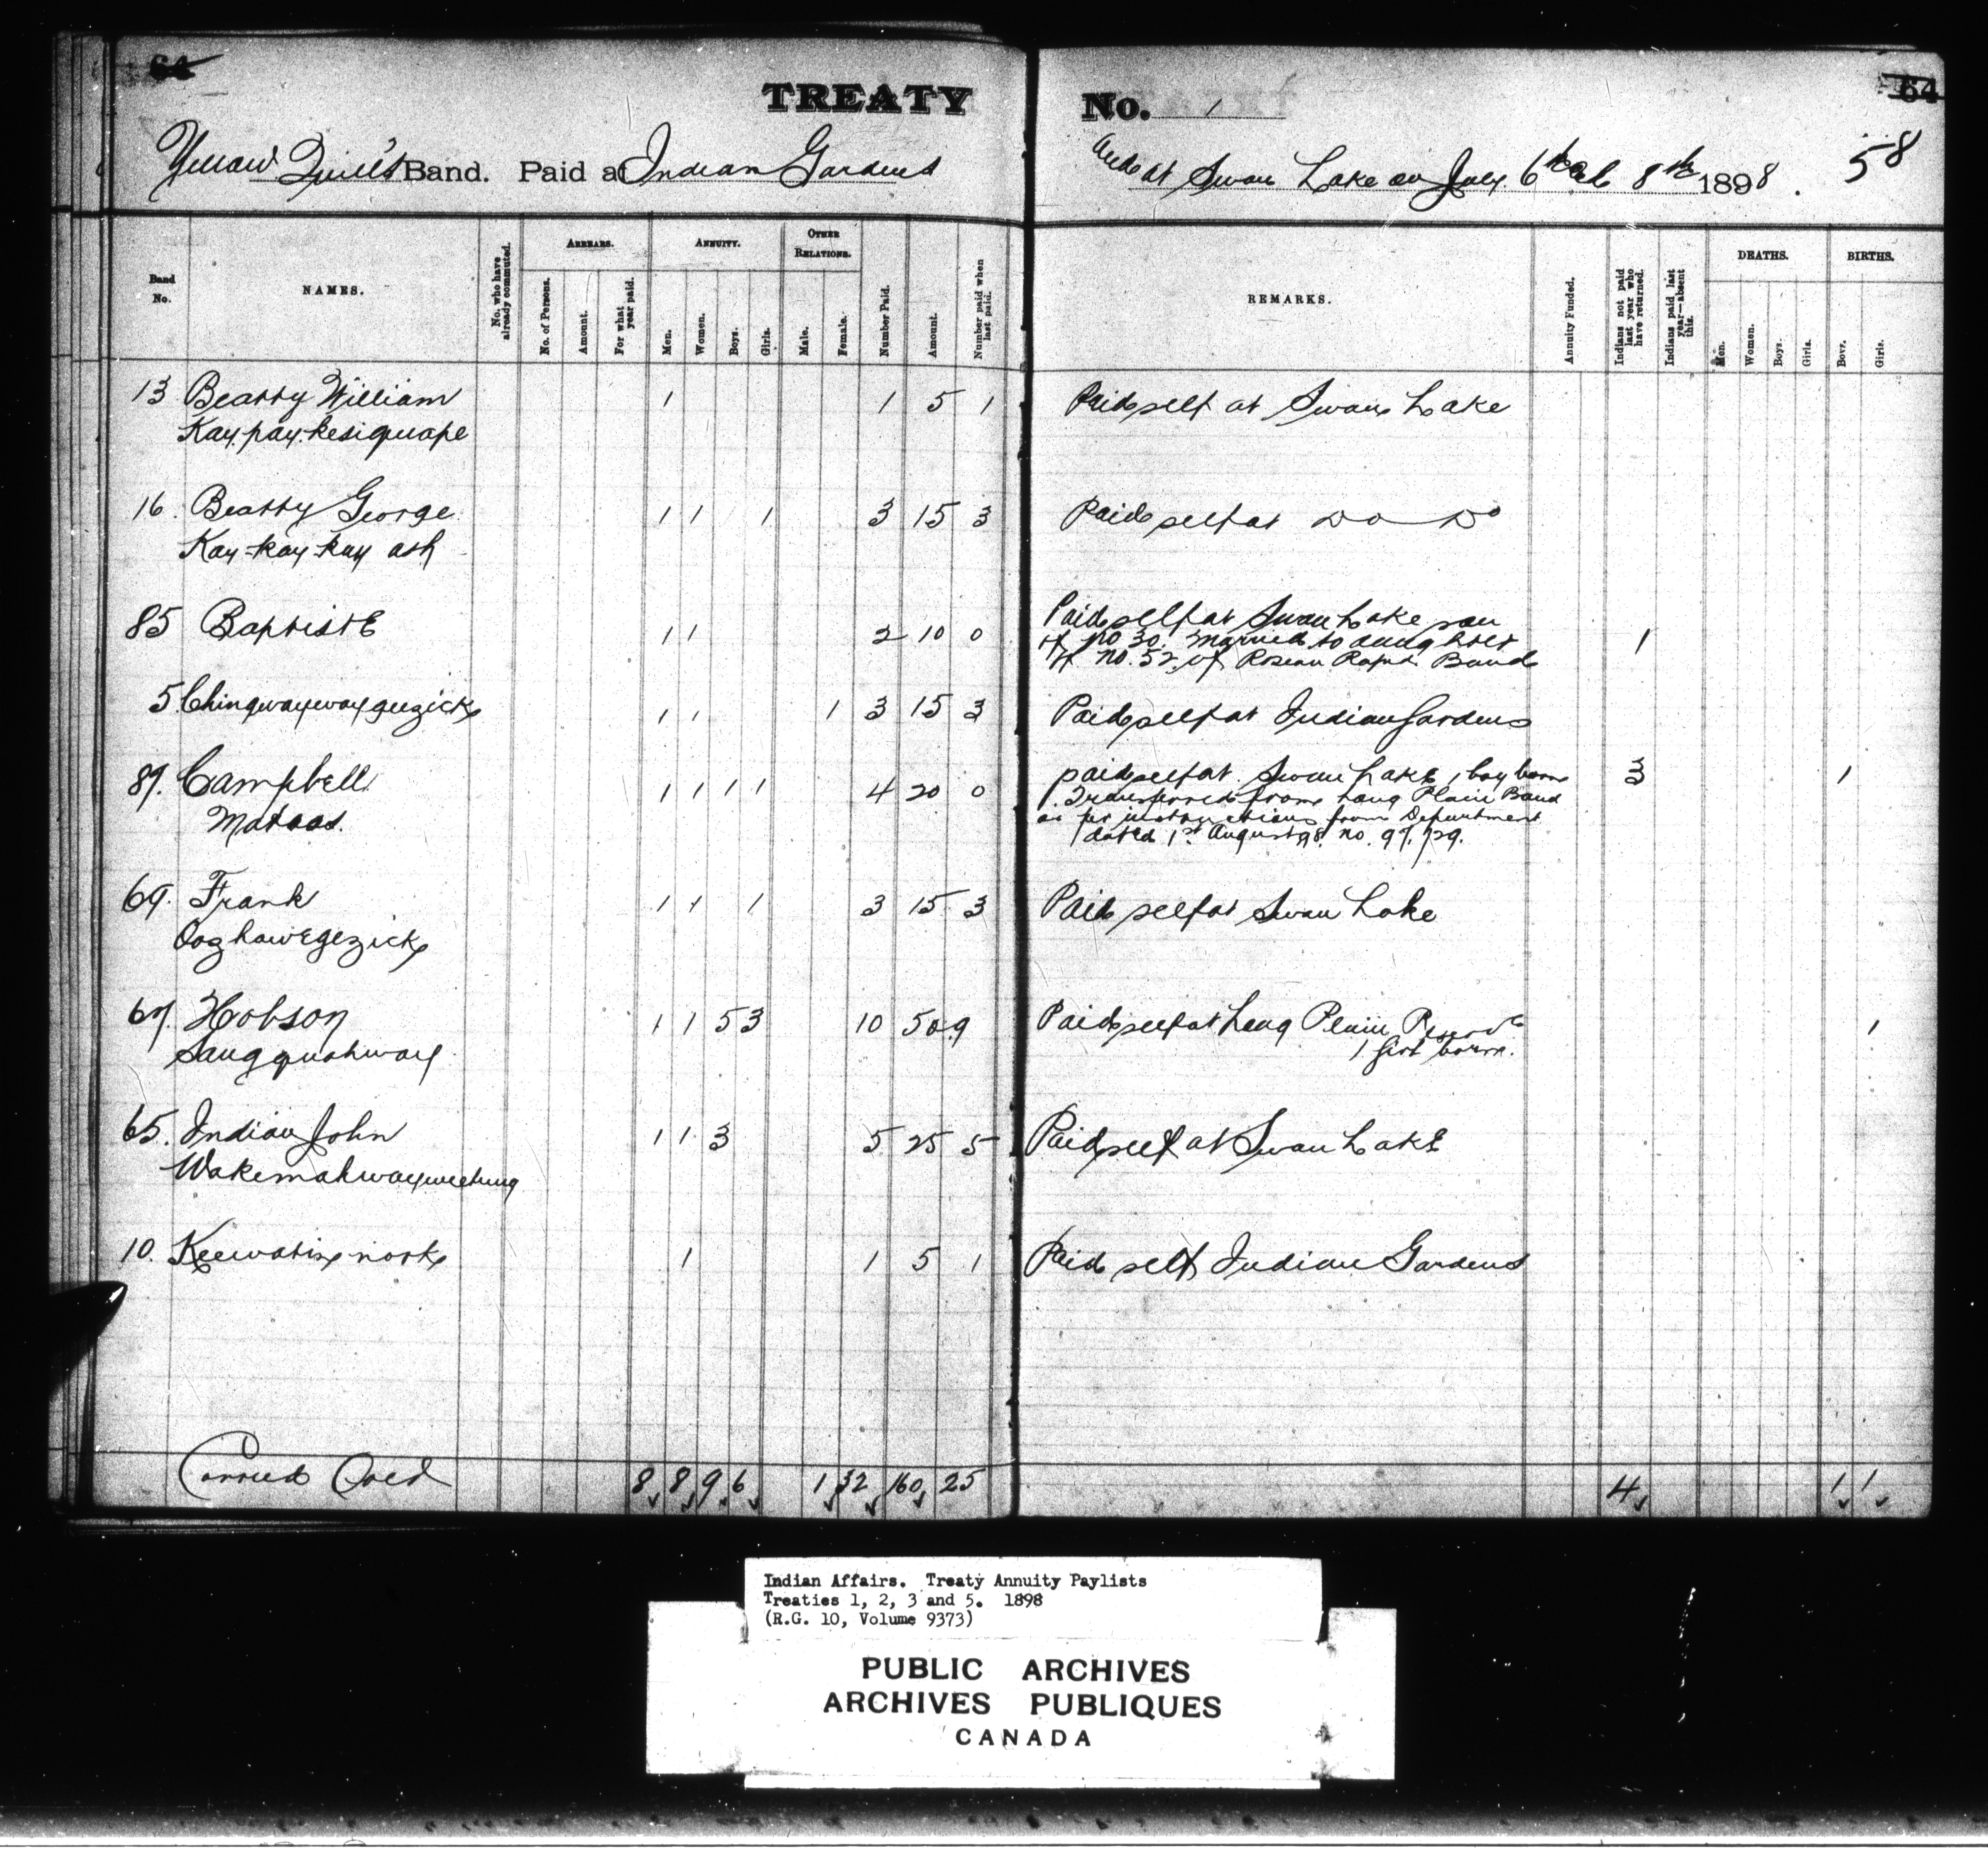 64
TREATY No. 1
64
Yellow Quill's Band. Paid at Indian Gardens and at Swan Lake on July 6th and 8th 1898. 58
Band No.
NAMES.
No. who have already commuted.
ARREARS.
No. of Persons.
Amount.
For what year paid.
ANNUITY.
Men.
Women.
Boys.
Girls.
OTHER RELATIONS.
Male.
Female.
Number Paid.
Amount.
Number paid when last paid.
REMARKS.
Annuity Funded.
Indians not paid last year who have returned.
Indians paid last year—absent this.
DEATHS.
Men.
Women.
Boys.
Girls.
BIRTHS.
Boys.
Girls.
13 Beatty William 1 1 5 1 Paid self at Swan Lake
Kay.pay.kesiquape
16. Beatty George 1 1 1 3 15 3 Paid self at Do Do
Kay-kay-kay ash
85 Baptiste 1 1 2 10 0 Paid self at Swan Lake son 1
of No 30. married to daughter
of no. 52 of Roseau Rapids Band
5. Chingwaywaygeezick 1 1 1 3 15 3 Paid self at Indian Gardens
89. Campbell 1 1 1 1 4 20 0 paid self at Swan Lake 1 boy born 3 1
Matoas. Transferred from Long Plain Band
as per instructions from Department
dated 1st August 98. no. 97.129.
69. Frank 1 1 1 3 15 3 Paid self at Swan Lake
Oozhawegezick
67. Hobson 1 1 5 3 10 50 9 Paid self at Long Plain Reserve 1
Saugquahway 1 girl born.
65. Indian John 1 1 3 5 25 5 Paid self at Swan Lake
Wakemahwayweetung
10. Keewatin nook 1 1 5 1 Paid self Indian Gardens
Carried Over 8 8 9 6 1 32 160 25 4 1 1
Indian Affairs. Treaty Annuity Paylists
Treaties 1, 2, 3 and 5. 1898
(R.G. 10, Volume 9373)
PUBLIC ARCHIVES
ARCHIVES PUBLIQUES
CANADA